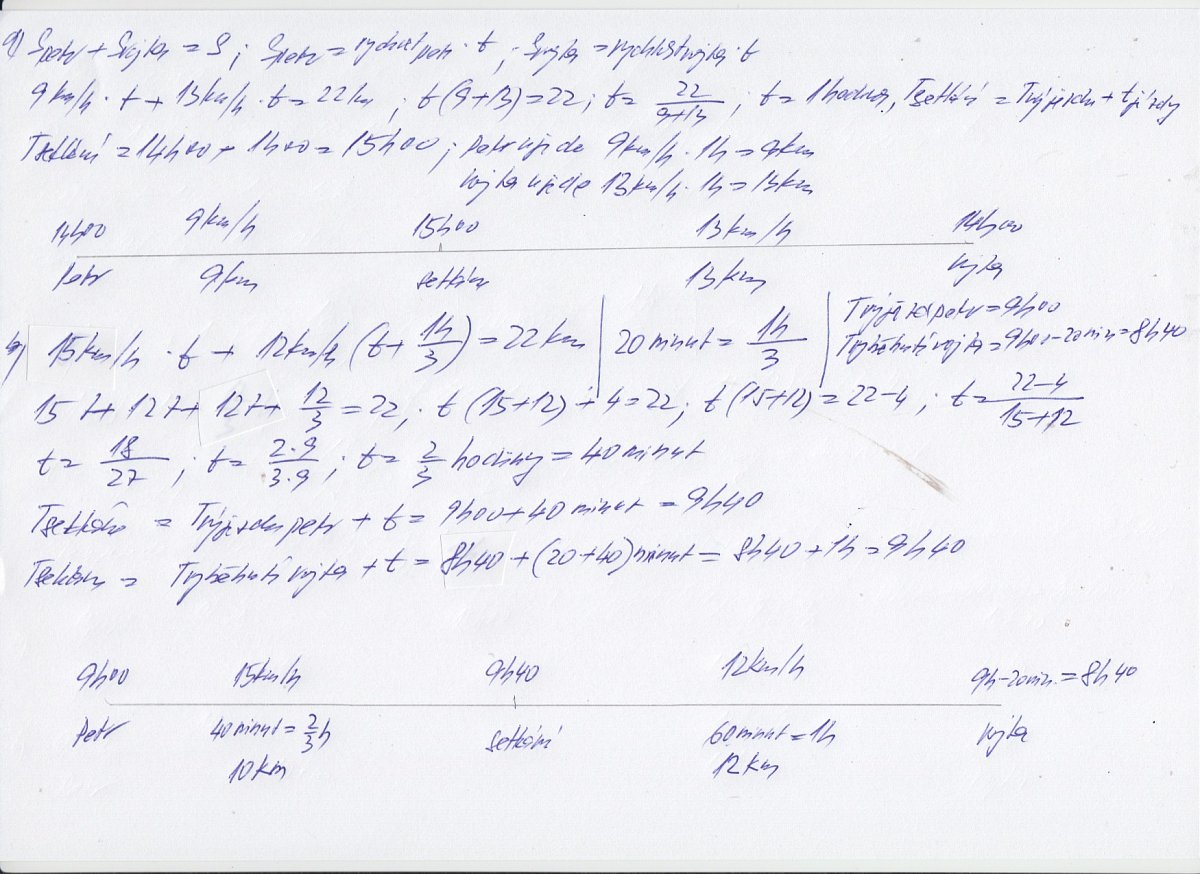 a) Spetr + Svojta = S ; Spetr = rychlost petr · t ; Svojta = rychlost vojta · t
9km/h · t + 13km/h · t = 22km ; t(9+13) = 22 ; t = 22/(9+13) ; t = 1 hodina, Tsetkání = Tvýjezdu + tjízdy
Tsetkání = 14h00 + 1h00 = 15h00 ; Petr ujede 9km/h · 1h = 9km
vojta ujede 13km/h · 1h = 13km
14h00 9km/h 15h00 13km/h 14h00
Petr 9km setkání 13km vojta
b) 15km/h · t + 12km/h (t + 1h/3) = 22km | 20 minut = 1h/3 | Tvýjezd petr = 9h00
Tvyběhnutí vojta = 9h00-20min = 8h40
15t + 12t + 12t + 12/3 = 22 ; t(15+12) + 4 = 22 ; t(15+12) = 22-4 ; t = (22-4)/(15+12)
t = 18/27 ; t = 2·9/3·9 ; t = 2/3 hodiny = 40 minut
Tsetkání = Tvýjezdu petr + t = 9h00 + 40 minut = 9h40
Tsetkání = Tvyběhnutí vojta + t = 8h40 + (20+40)minut = 8h40 + 1h = 9h40
9h00 15km/h 9h40 12km/h 9h-20min. = 8h40
Petr 40 minut = 2/3h setkání 60 minut = 1h vojta
10km 12km